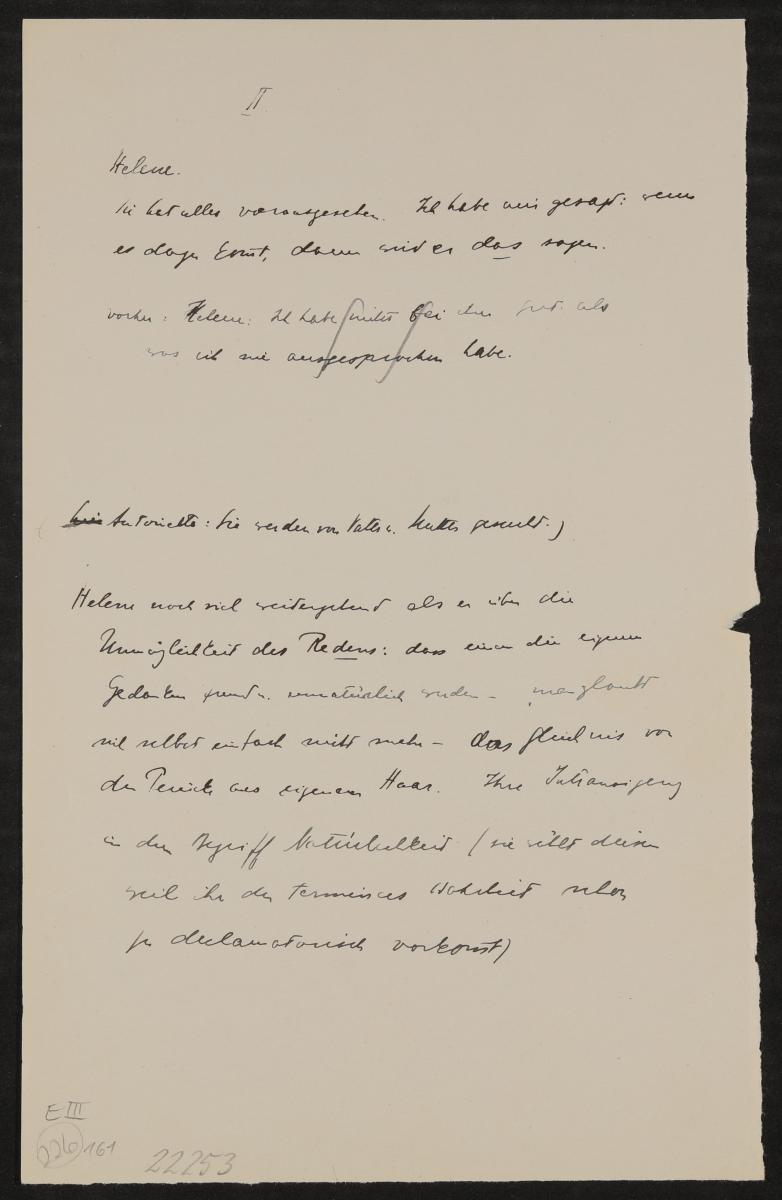 II
Helene.
Sie hat alles vorausgesehen. Ich habe mir gesagt: wenn
es dazu kommt, dann wird er das sagen.
vorher: Helene: Ich habe nichts bei ihm als
was ich nie ausgesprochen habe.
Antoinette: Sie werden von Vater u. Mutter gesucht.)
Helene noch viel weitergehend als er über die
Unmöglichkeit des Redens: dass einem die eigenen
Gedanken fremd u. unnatürlich werden – man glaubt
sich selbst einfach nicht mehr – das Gleichnis von
der Perücke aus eigenem Haar. Ihre
in den Begriff Natürlichkeit (sie wählt diesen
weil ihr der terminus Wahrheit schon
zu declamatorisch vorkomt)
E III
226 161
22253